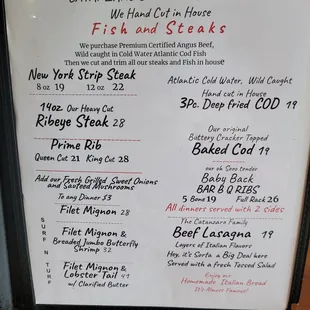 We Hand Cut in House
Fish and Steaks
We purchase Premium Certified Angus Beef,
Wild caught in Cold Water Atlantic Cod Fish
Then we cut and trim all our steaks and Fish in house!
New York Strip Steak
8 oz 19 12 oz 22
14oz Our Heavy Cut
Ribeye Steak 28
Prime Rib
Queen Cut 21 King Cut 28
Add our Fresh Grilled Sweet Onions
and Sauteed Mushrooms
To any Dinner $3
SURF N TURF
Filet Mignon 28
Filet Mignon &
Breaded Jumbo Butterfly
Shrimp 32
Filet Mignon &
Lobster Tail 41
w/ Clarified Butter
Atlantic Cold Water, Wild Caught
Hand cut in House
3Pc. Deep fried COD 19
Our original
Buttery Cracker Topped
Baked Cod 19
our oh Sooo tender
Baby Back
BAR B Q RIBS
5 Bone 19 Full Rack 26
All dinners served with 2 sides
The Catanzaro Family
Beef Lasagna 19
Layers of Italian Flavors
Hey, it's Sorta a Big Deal here
Served with a fresh Tossed Salad
Enjoy our
Homemade Italian Bread
It's Almost Famous!